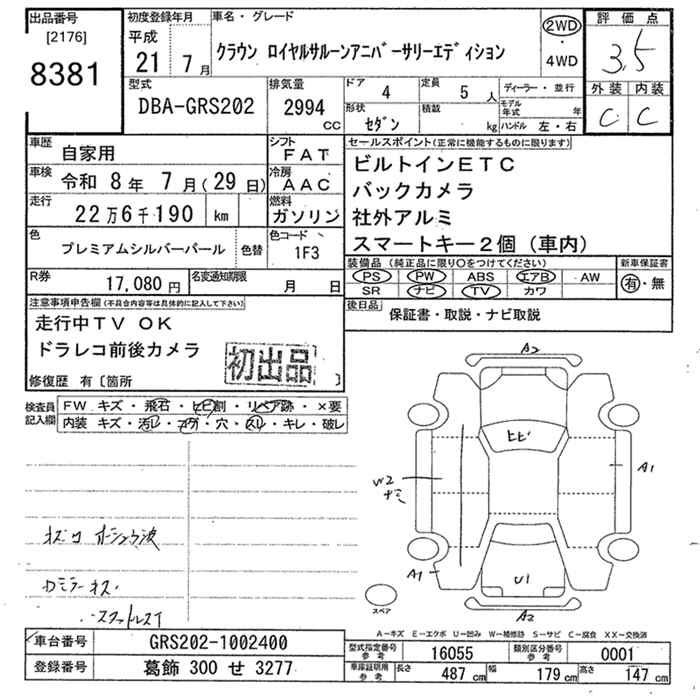 出品番号
[2176]
8381
初度登録年月
平成
21 7 月
車名・グレード
クラウン ロイヤルサルーンアニバーサリーエディション
2WD
・
4WD
評価点
3.5
外装 内装
C C
型式
DBA-GRS202
排気量
2994 CC
ドア 4
定員 5 人
形状 セダン
積載 kg
ディーラー・並行
モデル年式 年
ハンドル 左・右
車歴 自家用
シフト FAT
車検 令和 8 年 7 月(29 日)
冷房 AAC
走行 22万6千190 km
燃料 ガソリン
色 プレミアムシルバーパール 色替
色コード 1F3
R券 17,080 円
名変通知期限 月 日
セールスポイント(正常に機能するものに限ります)
ビルトインETC
バックカメラ
社外アルミ
スマートキー2個(車内)
装備品(純正品に限り〇をつけてください)
PS PW ABS エアB AW
SR ナビ TV カワ
新車保証書
有・無
後日品 保証書・取説・ナビ取説
注意事項申告欄(不具合内容等は具体的に記入して下さい)
走行中TV OK
ドラレコ前後カメラ
初出品
修復歴 有〔箇所 〕
検査員記入欄
FW キズ・飛石・ヒビ割・リペア跡・×要
内装 キズ・汚レ・コゲ・穴・スレ・キレ・破レ
A2
ヒビ
A1
W2
A1
U1
A2
スペア
A−キズ E−エクボ U−凹み W−補修跡 S−サビ C−腐食 XX−交換済
車台番号 GRS202-1002400
登録番号 葛飾 300 せ 3277
型式指定番号 参考 16055
類別区分番号 参考 0001
車庫証明用 参考 長さ 487 cm 幅 179 cm 高さ 147 cm